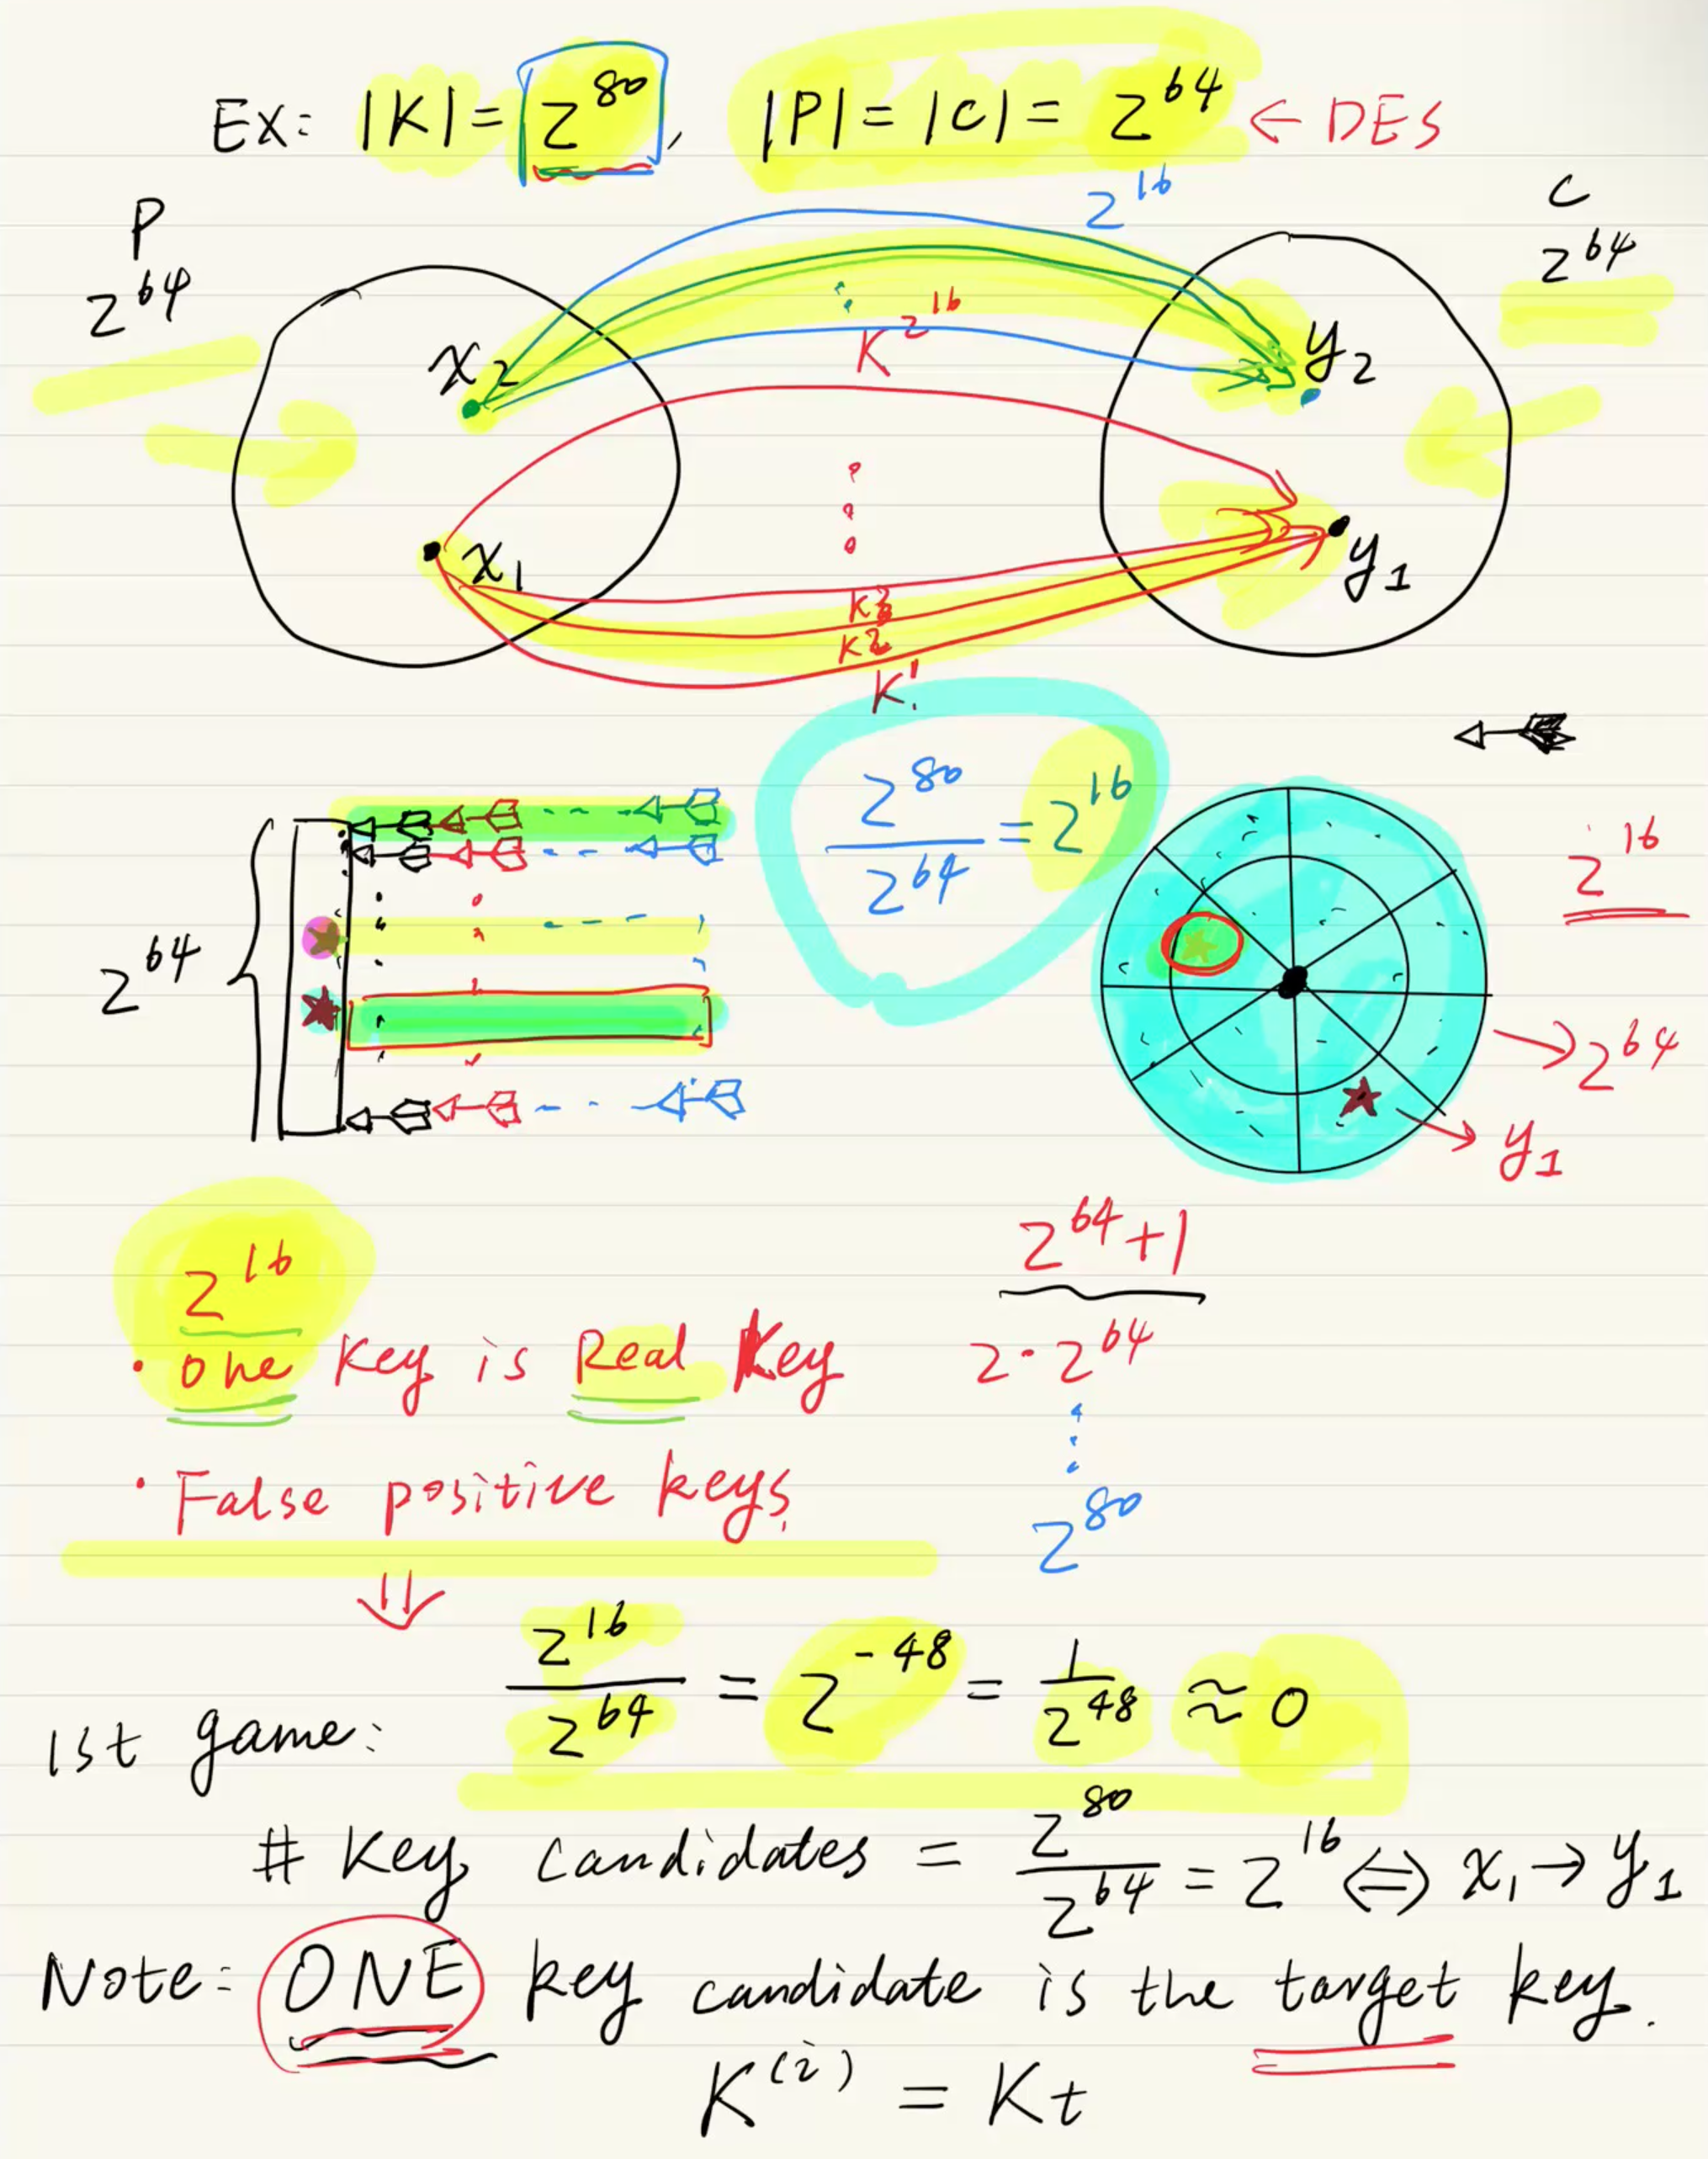 Ex: |K| = 2^80, |P| = |C| = 2^64 ← DES
P
2^64
C
2^64
2^16
x2
y2
K 2^16
x1
y1
K3
K2
K1
2^80 / 2^64 = 2^16
2^16
2^64
→ 2^64
→ y1
2^16
• one key is Real key
• False positive keys
⇓
2^64 + 1
2 · 2^64
⋮
2^80
1st game: 2^16 / 2^64 = 2^-48 = 1 / 2^48 ≈ 0
# key candidates = 2^80 / 2^64 = 2^16 ⇔ x1 → y1
Note: ONE key candidate is the target key.
K^(i) = Kt